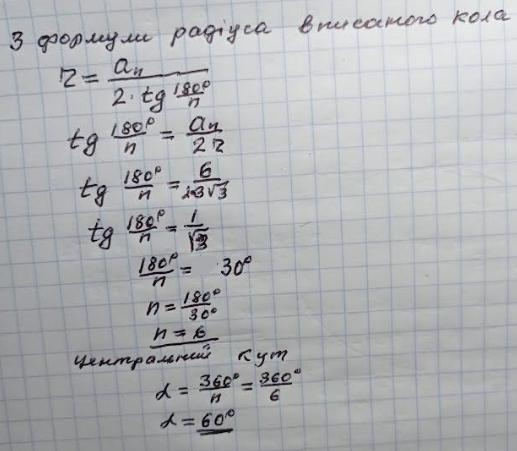 З формули радіуса вписаного кола
r = aₙ / (2 · tg 180°/n)
tg 180°/n = aₙ/2r
tg 180°/n = 6/2·3√3
tg 180°/n = 1/√3
180°/n = 30°
n = 180°/30°
n = 6
центральний кут
α = 360°/n = 360°/6
α = 60°